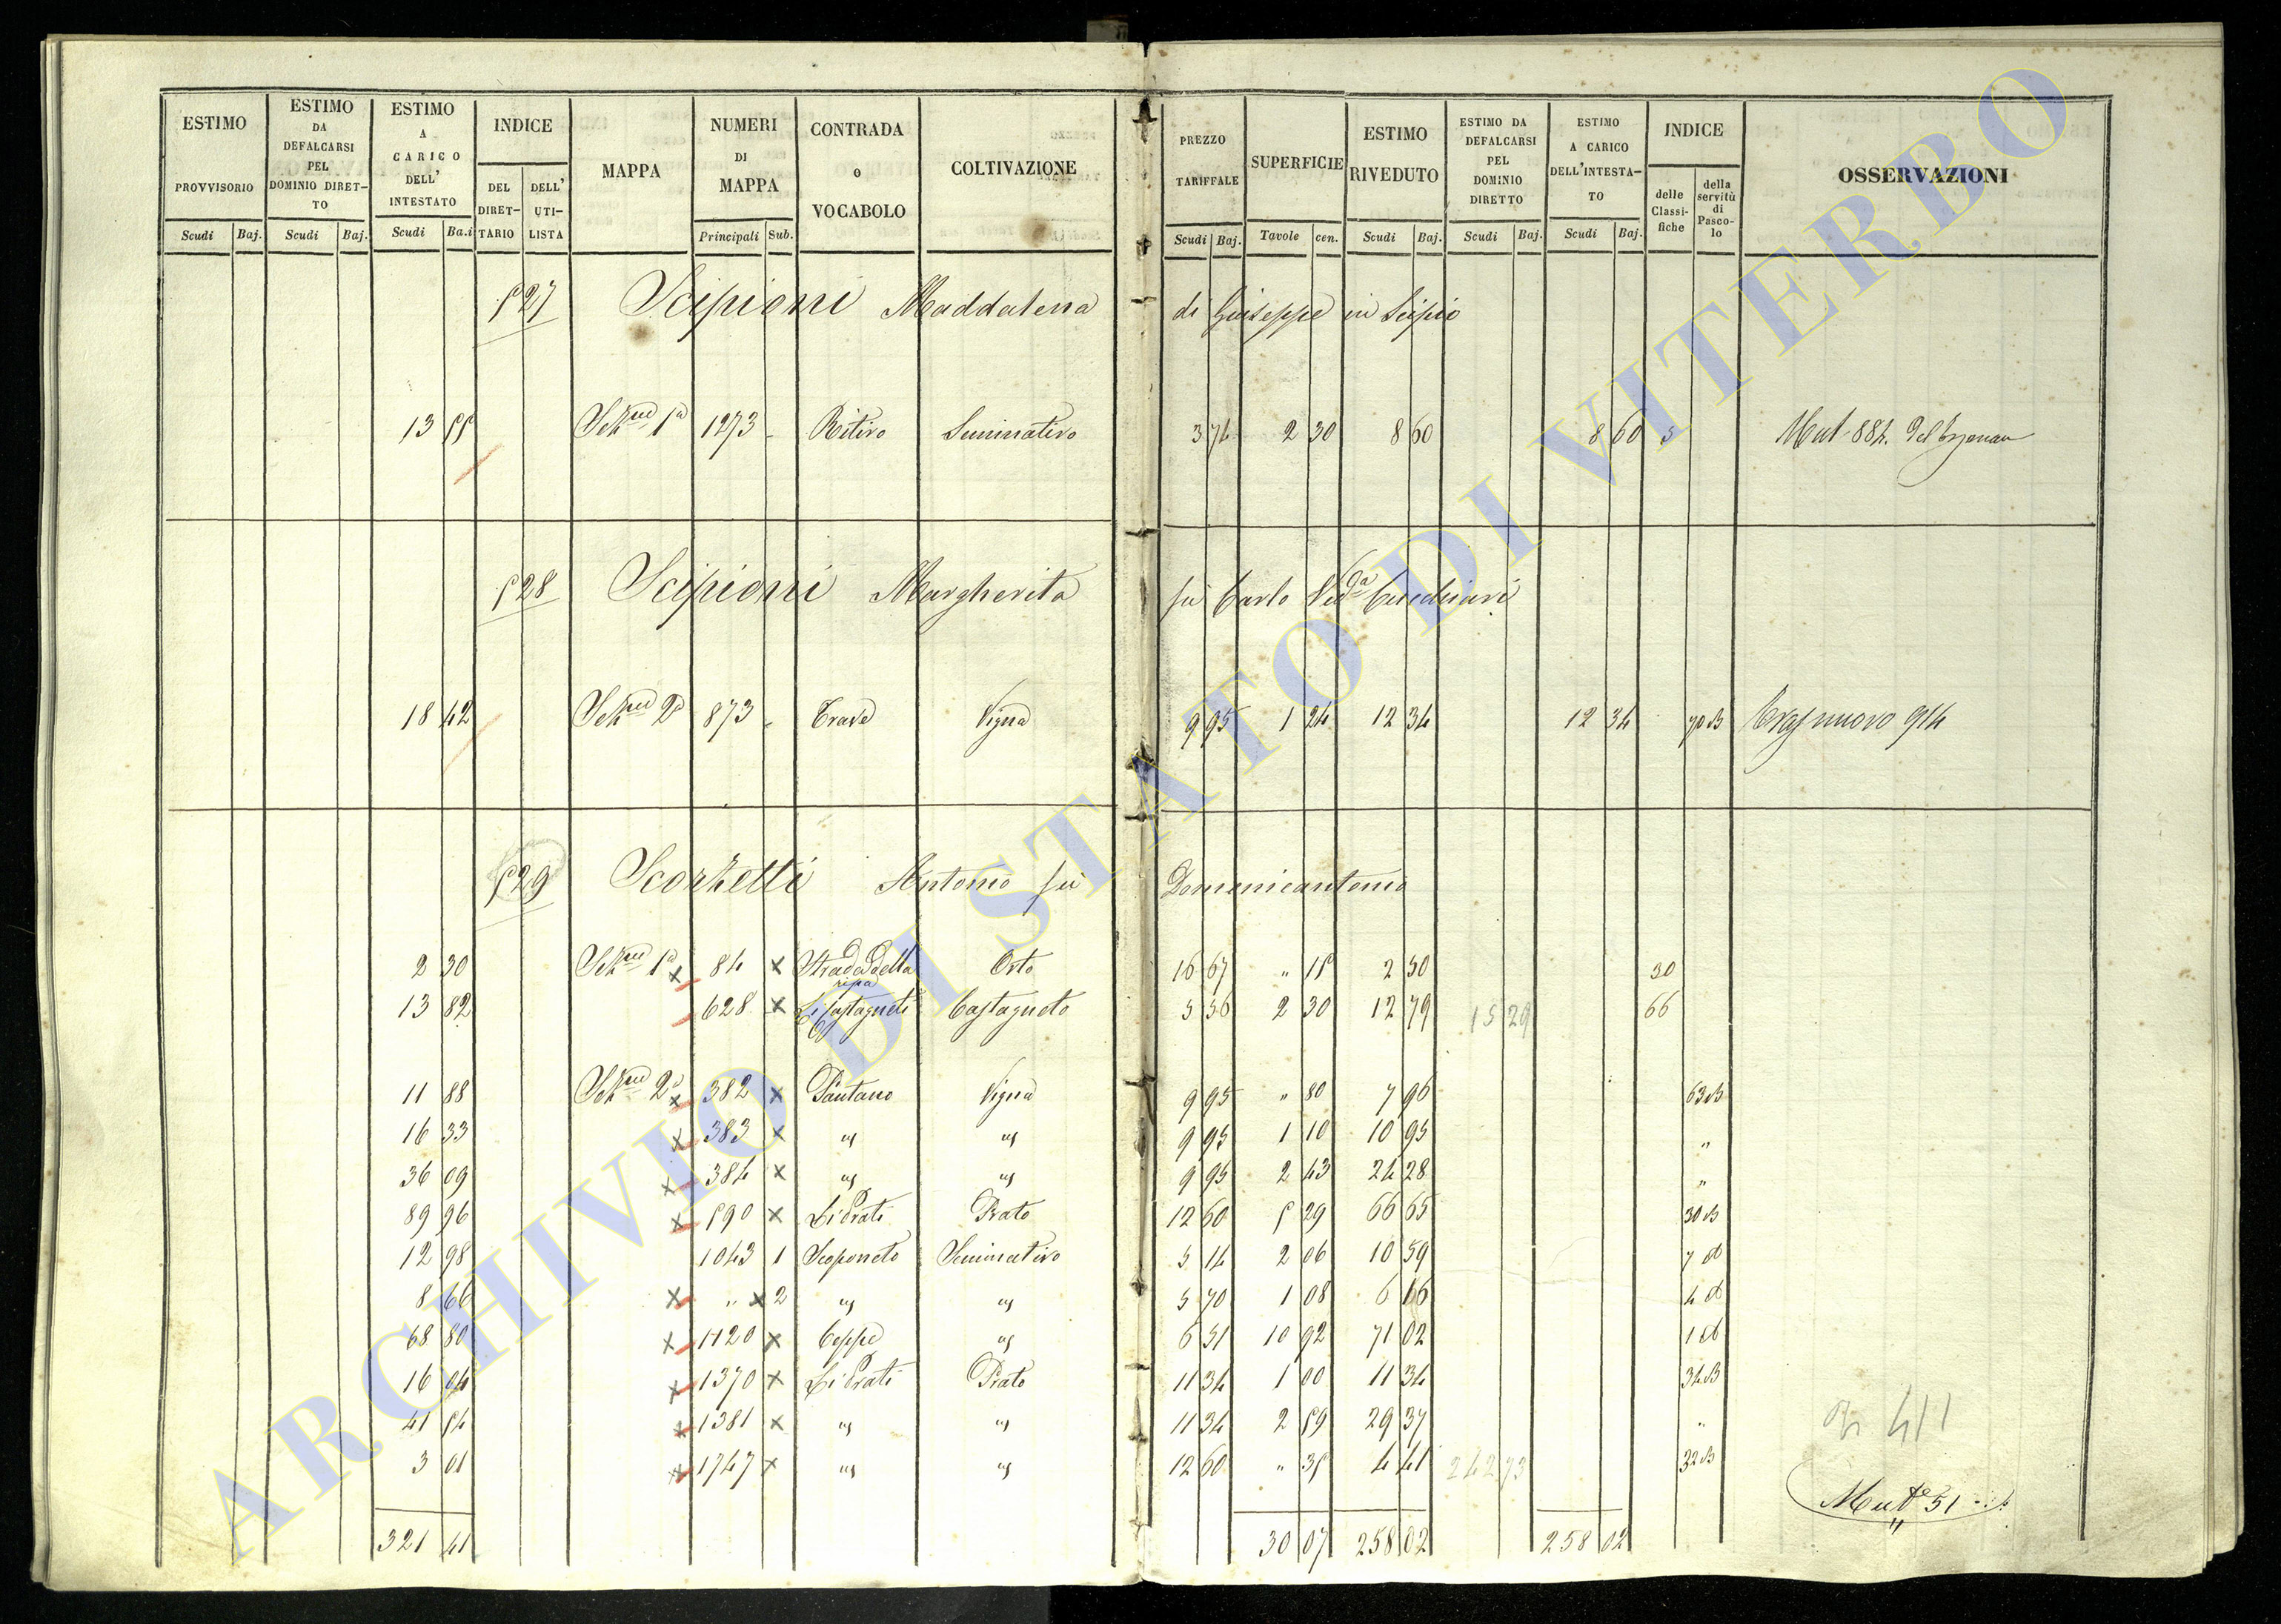 ESTIMO PROVVISORIO | ESTIMO DA DEFALCARSI PEL DOMINIO DIRETTO | ESTIMO A CARICO DELL' INTESTATO | INDICE DEL DIRETTARIO | DELL' UTILISTA | MAPPA | NUMERI DI MAPPA | CONTRADA o VOCABOLO | COLTIVAZIONE | PREZZO TARIFFALE | SUPERFICIE | ESTIMO RIVEDUTO | ESTIMO DA DEFALCARSI PEL DOMINIO DIRETTO | ESTIMO A CARICO DELL'INTESTATO | INDICE delle Classifiche | della servitù di Pascolo | OSSERVAZIONI
Scudi Baj. | Scudi Baj. | Scudi Ba.i | Principali Sub. | Scudi Baj. | Tavole cen. | Scudi Baj. | Scudi Baj. | Scudi Baj.
527 Scipioni Maddalena di Giuseppe in Scipio
13 55 1273 - Ritiro Seminativo 3 74 2 30 8 60 8 60 5 Mut 884.
528 Scipioni Margherita fu Carlo Ved.a
18 42 873 - Trave Vigna 9 95 1 24 12 34 12 34 70 B Trasf nuovo 914
529 Scorzetti Antonio fu Domenicantonio
2 30 84 x Strada della ripa Orto 16 67 " 15 2 50 30
13 82 628 x Li Castagneti Castagneto 5 56 2 30 12 79 15 29 66
11 88 x 382 x Pantano Vigna 9 95 " 80 7 96 63 B
16 33 x 383 x " " 9 95 1 10 10 95 "
36 09 x 384 x " " 9 95 2 43 24 28 "
89 96 x 590 x Li Prati Prato 12 60 5 29 66 65 30 B
12 98 1043 1 Scoponeto Seminativo 5 14 2 06 10 59 7 B
8 66 x " x 2 " " 5 70 1 08 6 16 4 B
68 80 x 1120 x Ceppe " 6 51 10 92 71 02 1 B
16 04 x 1370 x Li Prati Prato 11 34 1 00 11 34 34 B
41 54 x 1381 x " " 11 34 2 59 29 37 "
3 01 x 1747 x " " 12 60 " 35 4 41 242 73 32 B
411
Mut.e 51
321 41 30 07 258 02 258 02
ARCHIVIO DI STATO DI VITERBO